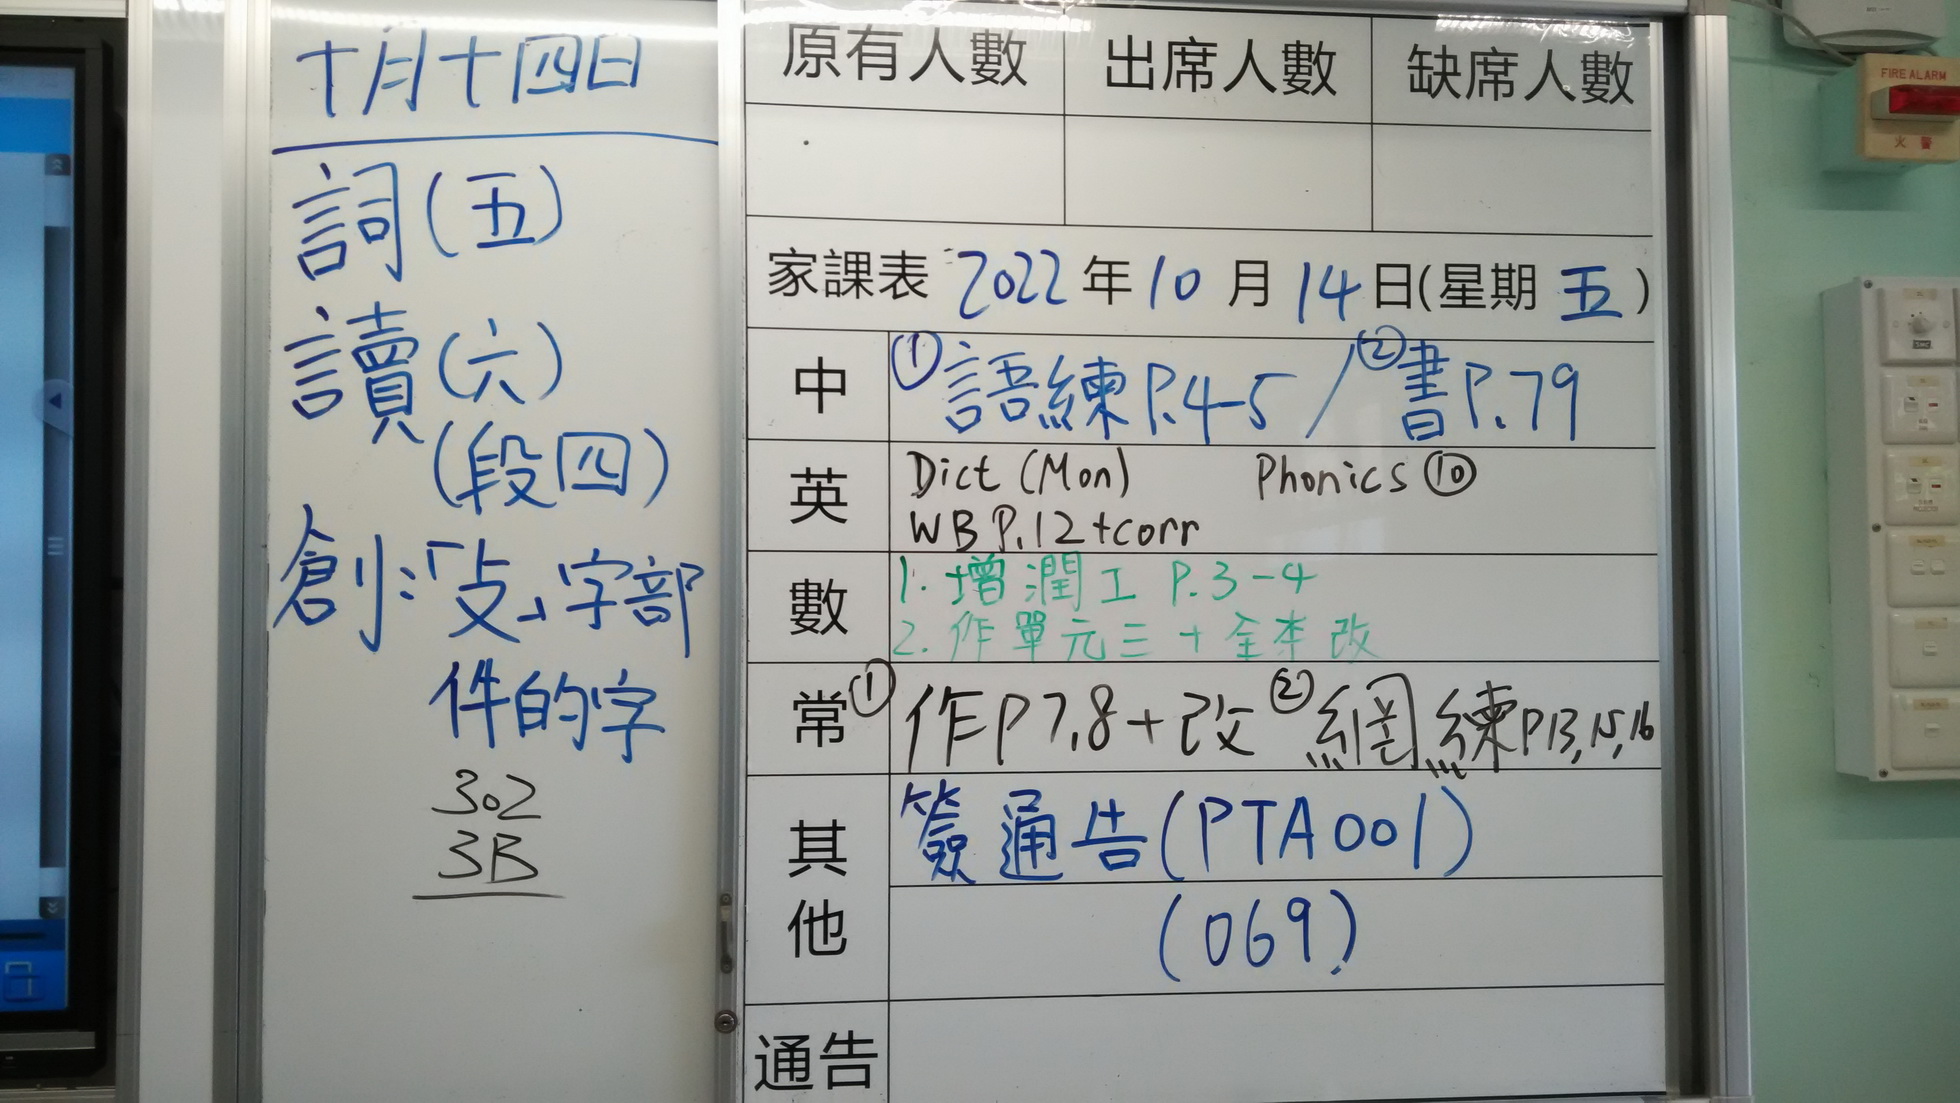 十月十四日
詞(五)
讀(六)
(段四)
創:「攴」字部
件的字
302
3B
原有人數 出席人數 缺席人數
家課表 2022年10月14日(星期五)
中 ①語練P.4-5 / ②書P.79
英 Dict (Mon) Phonics ⑩
WB P.12+corr
數 1. 增潤工 P.3-4
2. 作單元三+全本改
常 ①作P7,8+改 ②網練P13,15,16
其他 簽通告(PTA001)
(069)
通告
FIRE ALARM
火警